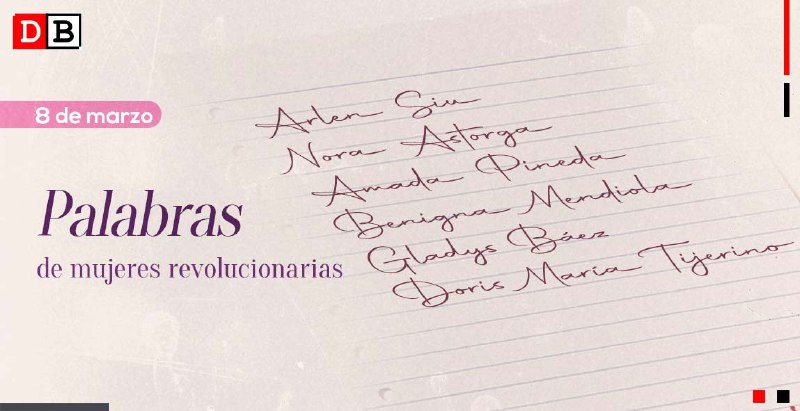 DB
8 de marzo
Palabras
de mujeres revolucionarias
Arlen Siu
Nora Astorga
Amada Pineda
Benigna Mendiola
Gladys Báez
Doris María Tijerino